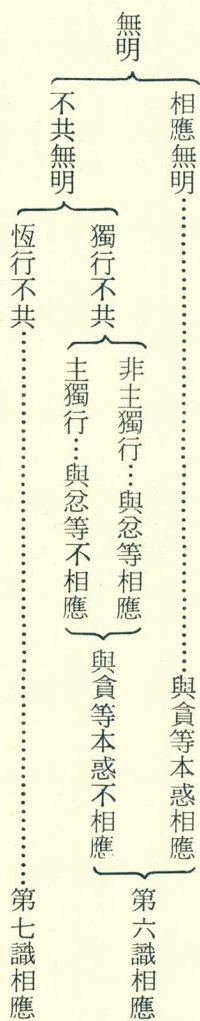 無明
相應無明……與貪等本惑相應
不共無明
獨行不共
非主獨行…與忿等相應
主獨行…與忿等不相應
與貪等本惑不相應
第六識相應
恆行不共……第七識相應